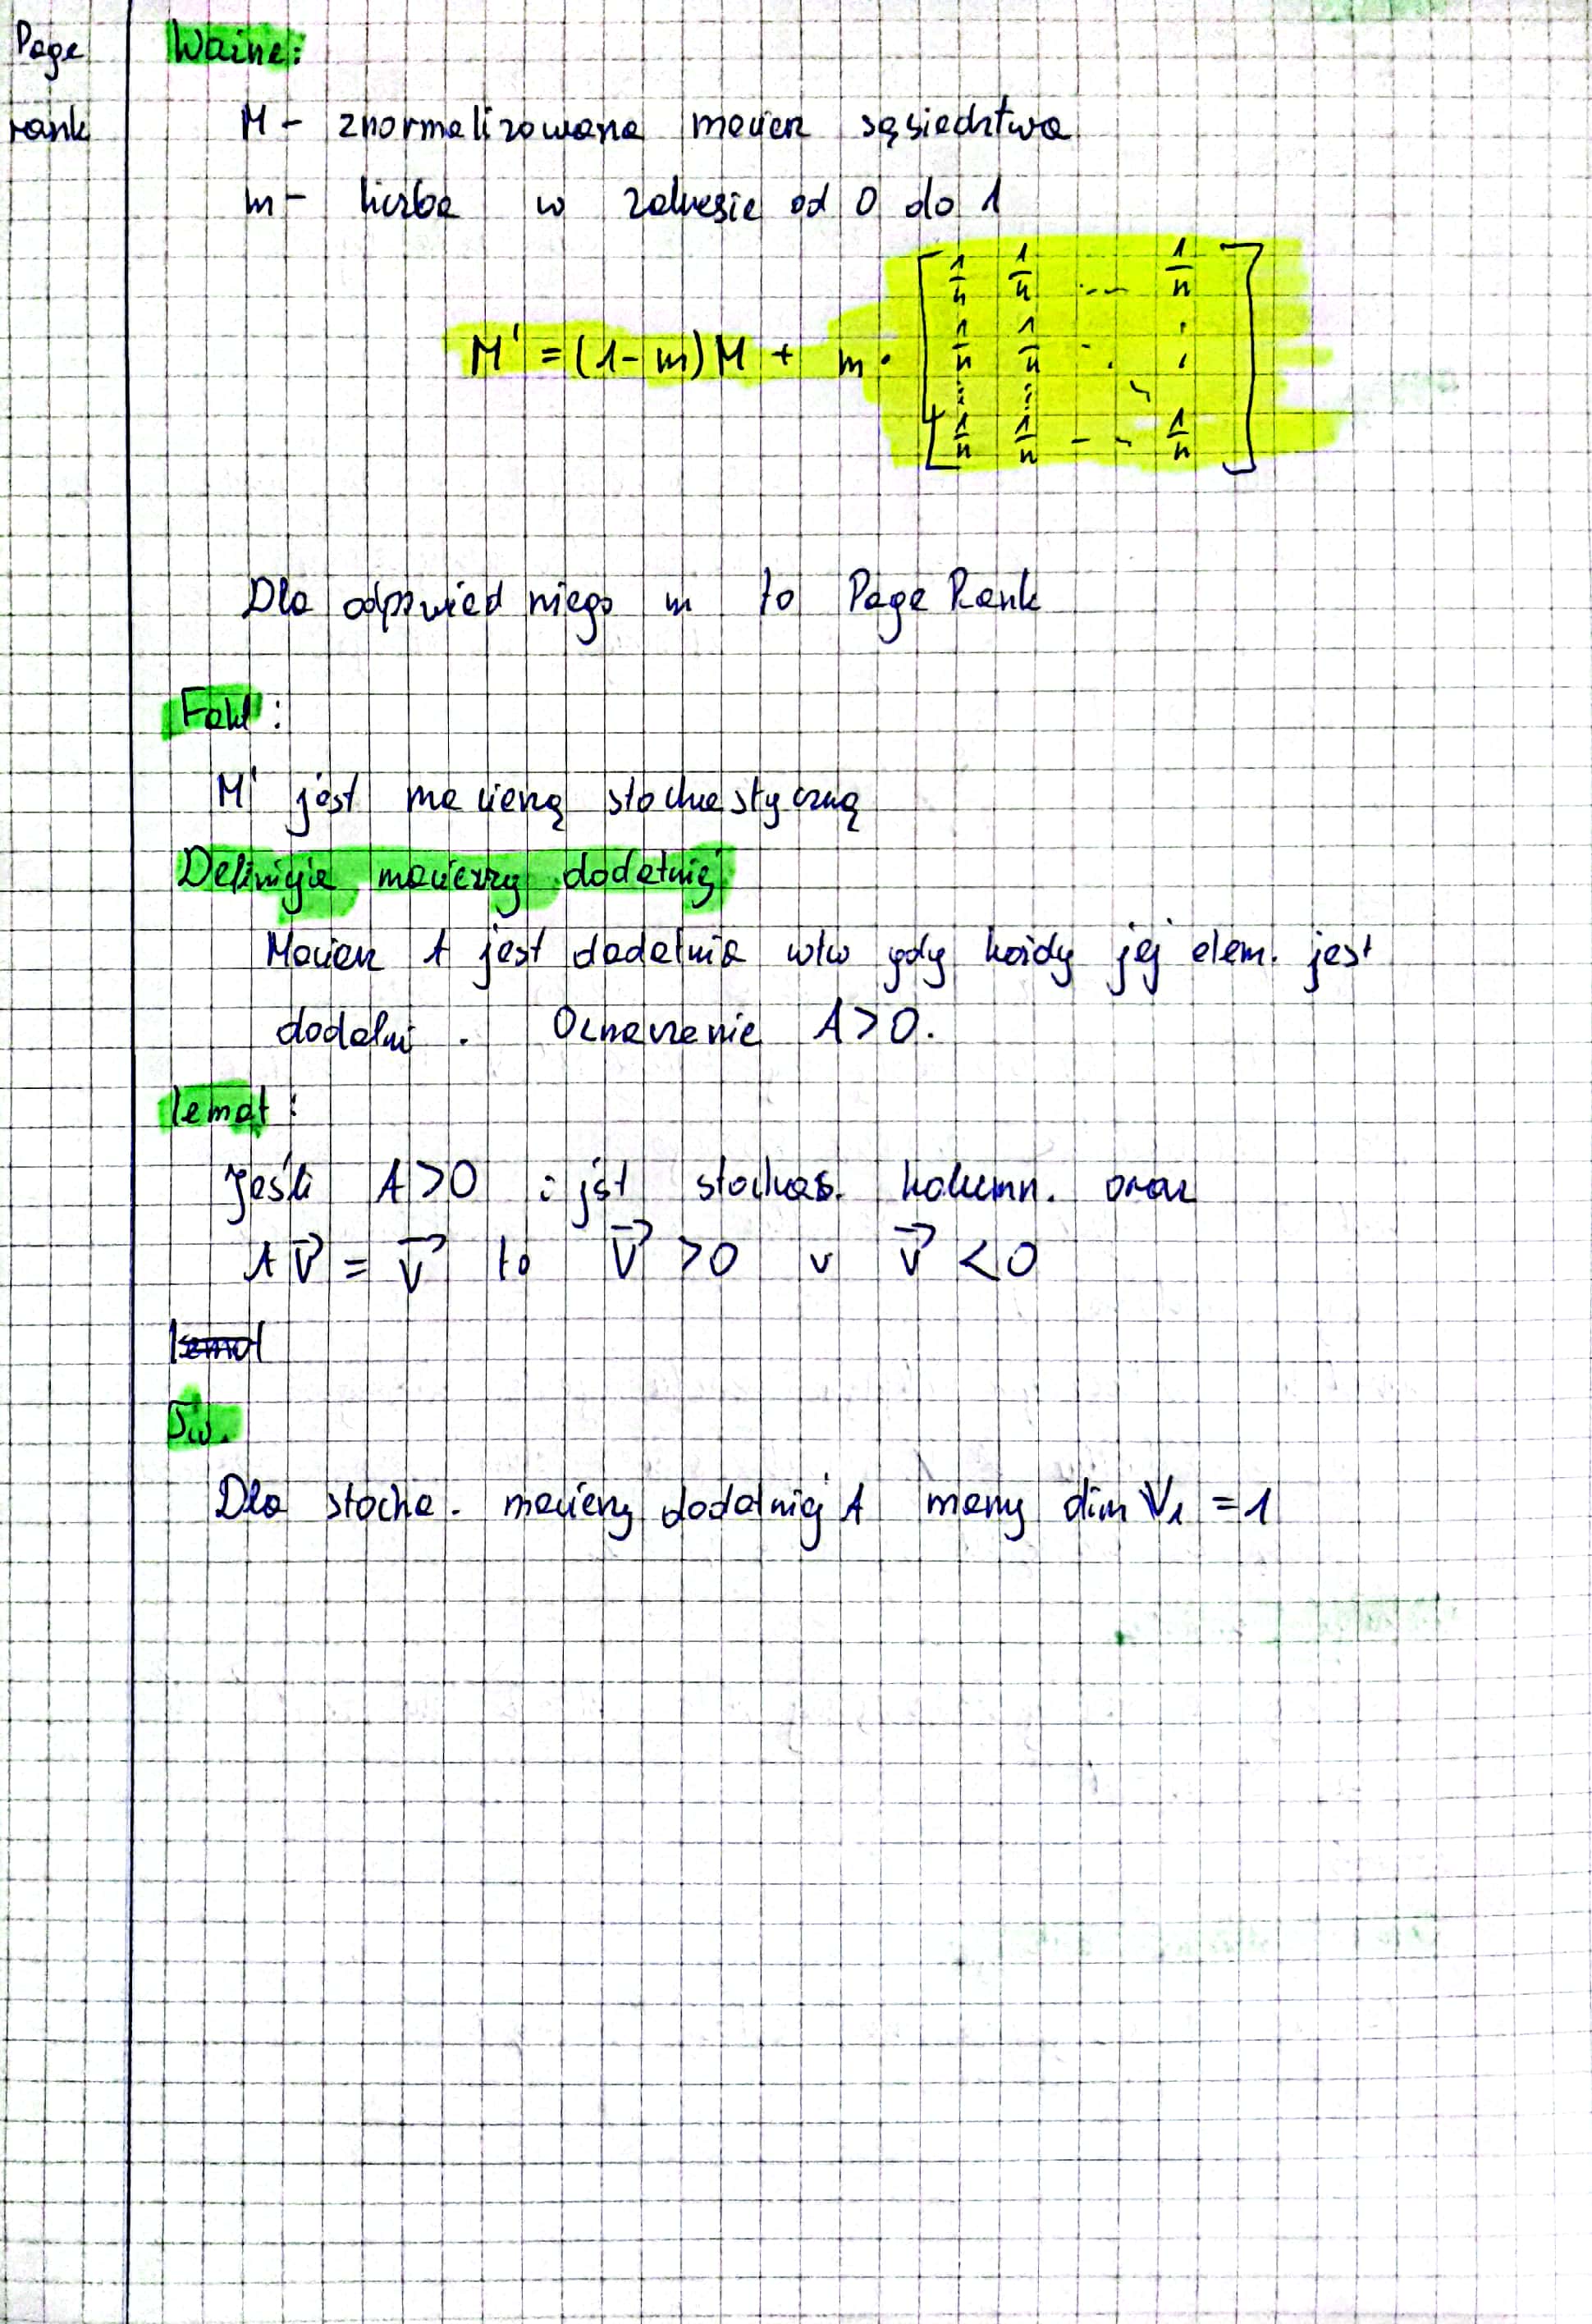 Page
rank
Ważne:
M - znormalizowana macierz sąsiedztwa
m - liczba w zakresie od 0 do 1
M' = (1-m)M + m · [ 1/n 1/n ... 1/n
1/n 1/n . . .
⋮ ⋮ ⋱
1/n 1/n - - 1/n ]
Dla odpowiedniego m to Page Rank
Fakt:
M' jest macierzą stochastyczną
Definicja macierzy dodatniej
Macierz A jest dodatnia wtw gdy każdy jej elem. jest
dodatni . Oznaczenie A>0.
lemat:
Jeśli A>0 i jst stochas. kolumn. oraz
A v⃗ = v⃗ to v⃗ >0 v v⃗ <0
Tw.
Dla stocha. macierzy dodatniej A mamy dim V₁ = 1